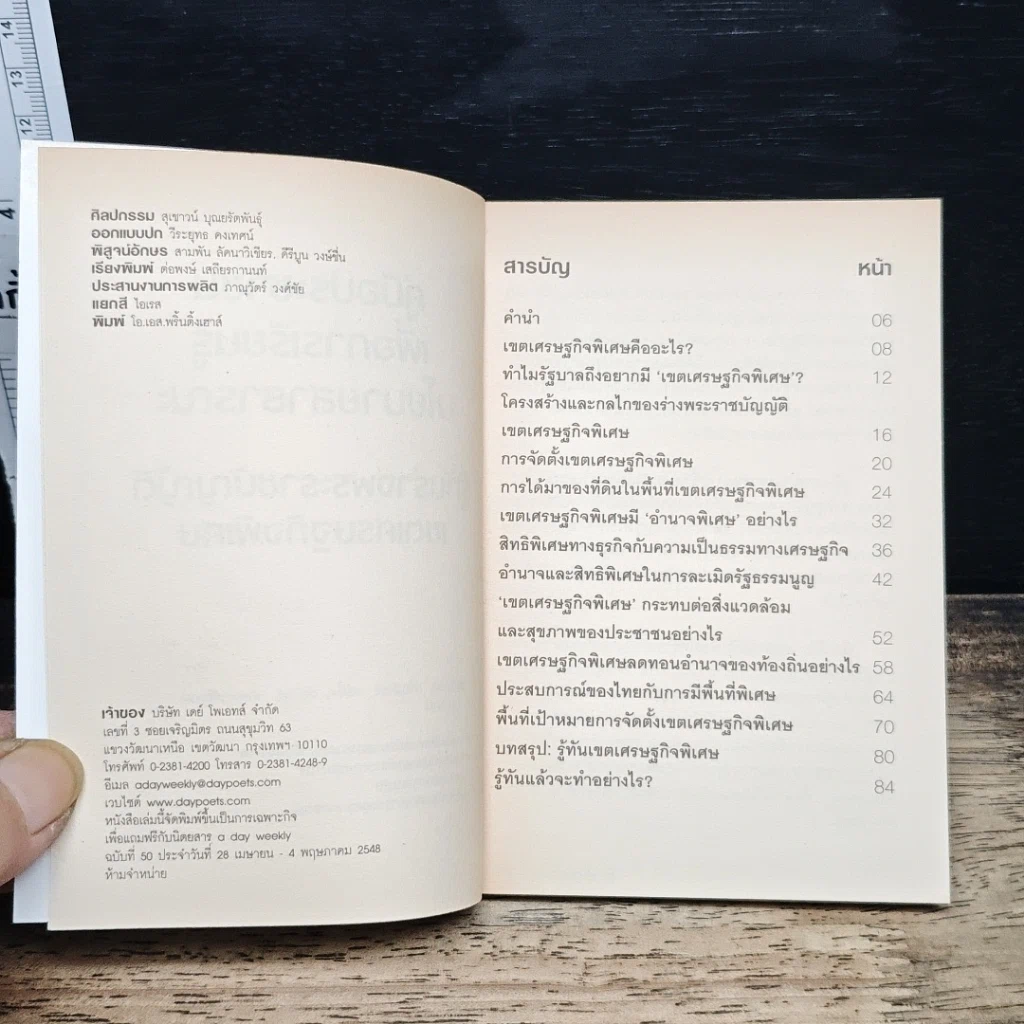 14
13
12
4
ศิลปกรรม สุเชาวน์ บุณยรัตพันธุ์
ออกแบบปก วีระยุทธ คงเทศน์
พิสูจน์อักษร สามพัน ลัดนาวิเชียร, คีรีบูน วงษ์ชื่น
เรียงพิมพ์ ต่อพงษ์ เสถียรกานนท์
ประสานงานการผลิต ภาณุวัตร์ วงศ์ชัย
แยกสี ไอเรส
พิมพ์ โอ.เอส.พริ้นติ้งเฮาส์
เจ้าของ บริษัท เดย์ โพเอทส์ จำกัด
เลขที่ 3 ซอยเจริญมิตร ถนนสุขุมวิท 63
แขวงวัฒนาเหนือ เขตวัฒนา กรุงเทพฯ 10110
โทรศัพท์ 0-2381-4200 โทรสาร 0-2381-4248-9
อีเมล adayweekly@daypoets.com
เวบไซต์ www.daypoets.com
หนังสือเล่มนี้จัดพิมพ์ขึ้นเป็นการเฉพาะกิจ
เพื่อแถมฟรีกับนิตยสาร a day weekly
ฉบับที่ 50 ประจำวันที่ 28 เมษายน - 4 พฤษภาคม 2548
ห้ามจำหน่าย
สารบัญ หน้า
คำนำ 06
เขตเศรษฐกิจพิเศษคืออะไร? 08
ทำไมรัฐบาลถึงอยากมี ‘เขตเศรษฐกิจพิเศษ’? 12
โครงสร้างและกลไกของร่างพระราชบัญญัติ
เขตเศรษฐกิจพิเศษ 16
การจัดตั้งเขตเศรษฐกิจพิเศษ 20
การได้มาของที่ดินในพื้นที่เขตเศรษฐกิจพิเศษ 24
เขตเศรษฐกิจพิเศษมี ‘อำนาจพิเศษ’ อย่างไร 32
สิทธิพิเศษทางธุรกิจกับความเป็นธรรมทางเศรษฐกิจ 36
อำนาจและสิทธิพิเศษในการละเมิดรัฐธรรมนูญ 42
‘เขตเศรษฐกิจพิเศษ’ กระทบต่อสิ่งแวดล้อม
และสุขภาพของประชาชนอย่างไร 52
เขตเศรษฐกิจพิเศษลดทอนอำนาจของท้องถิ่นอย่างไร 58
ประสบการณ์ของไทยกับการมีพื้นที่พิเศษ 64
พื้นที่เป้าหมายการจัดตั้งเขตเศรษฐกิจพิเศษ 70
บทสรุป: รู้ทันเขตเศรษฐกิจพิเศษ 80
รู้ทันแล้วจะทำอย่างไร? 84